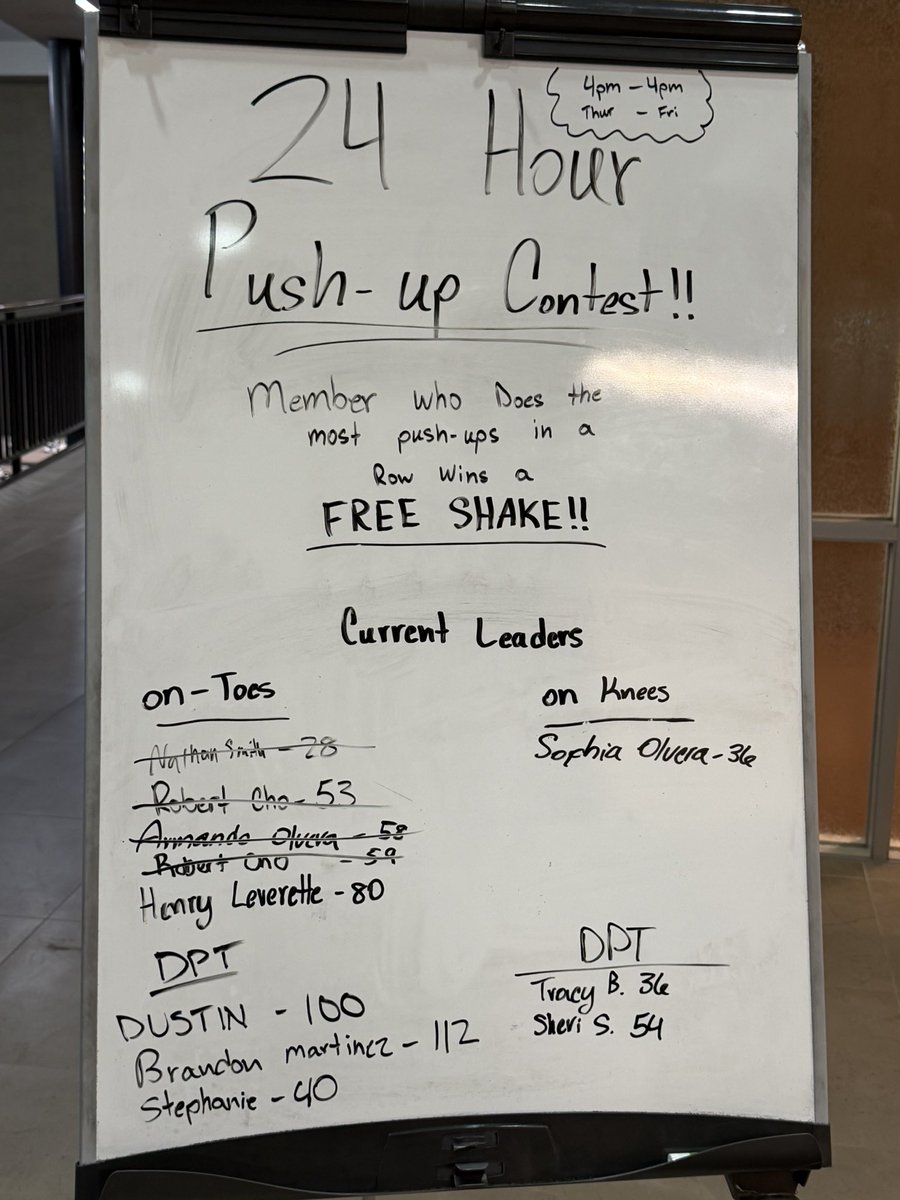 24 Hour
4pm - 4pm
Thur - Fri
Push-up Contest!!
Member who Does the
most push-ups in a
Row Wins a
FREE SHAKE!!
Current Leaders
on-Toes
Nathan Smith - 28
Robert Cho - 53
Armando Olvera - 58
Robert Cho - 59
Henry Leverette - 80
DPT
DUSTIN - 100
Brandon martinez - 112
Stephanie - 40
on Knees
Sophia Olvera - 36
DPT
Tracy B. 36
Sheri S. 54